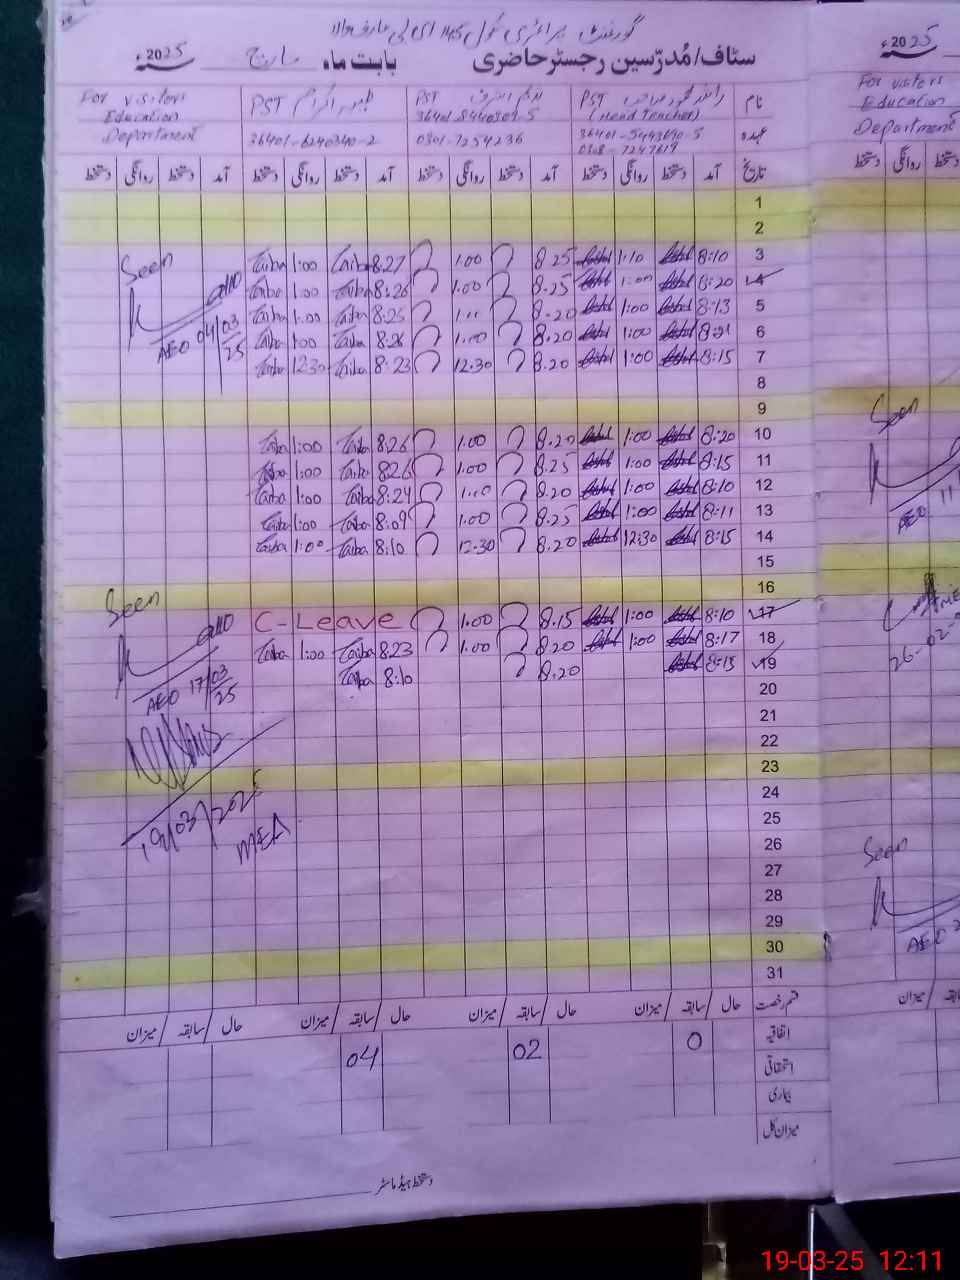 گورنمنٹ پرائمری سکول 145 ای بی عارفوالا
سٹاف/مُدرّسین رجسٹر حاضری بابت ماہ مارچ 2025ء
نام PST (Head Teacher) PST PST طیبہ اکرام For visitors Education Department
عہدہ 36401-5443690-5 0308-7247619 36401-8440309-5 0301-7254236 36401-6240340-2
تاریخ آمد دستخط روانگی دستخط آمد دستخط روانگی دستخط آمد دستخط روانگی دستخط آمد دستخط روانگی دستخط
1
2
3 8:10 1:10 8.25 1.00 8:27 Taiba 1:00 Taiba Seen
4 8:20 1:00 8.25 1.00 8:26 Taiba 1:00 Taiba
5 8:13 1:00 8.20 1.00 8:25 Taiba 1:00 Taiba
6 8:21 1:00 8.20 1.00 8:26 Taiba 1:00 Taiba AEO 04/03/25
7 8:15 1:00 8.20 12.30 8:23 Taiba 12:30 Taiba
8
9
10 8:20 1:00 8.20 1.00 8:26 Taiba 1:00 Taiba
11 8:15 1:00 8.25 1.00 8:26 Taiba 1:00 Taiba
12 8:10 1:00 8.20 1.00 8:24 Taiba 1:00 Taiba
13 8:11 1:00 8.25 1.00 8:09 Taiba 1:00 Taiba
14 8:15 12:30 8.20 12.30 8:10 Taiba 1:00 Taiba
15
16
17 8:10 1:00 8.15 1.00 C-Leave Seen
18 8:17 1:00 8.20 1.00 8:23 Taiba 1:00 Taiba
19 8:15 8.20 8:10 Taiba
20 AEO 17/03/25
21
22
23
24
25 19/03/2025
26 MEA
27
28
29
30
31
قسم رخصت حال / سابقہ / میزان حال / سابقہ / میزان حال / سابقہ / میزان حال / سابقہ / میزان
اتفاقیہ 0 02 04
استحقاقی
بیماری
میزان کل
دستخط ہیڈ ماسٹر
2025ء
For visitors
Education
Department
دستخط روانگی دستخط
Seen
AEO 11
26-02-
Seen
AEO 2
میزان / سابقہ
19-03-25 12:11